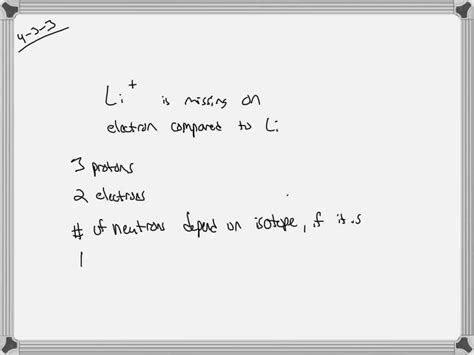 4-3-3
Li+ is missing an
electron compared to Li
3 protons
2 electrons
# of neutrons depend on isotope, if it is
1